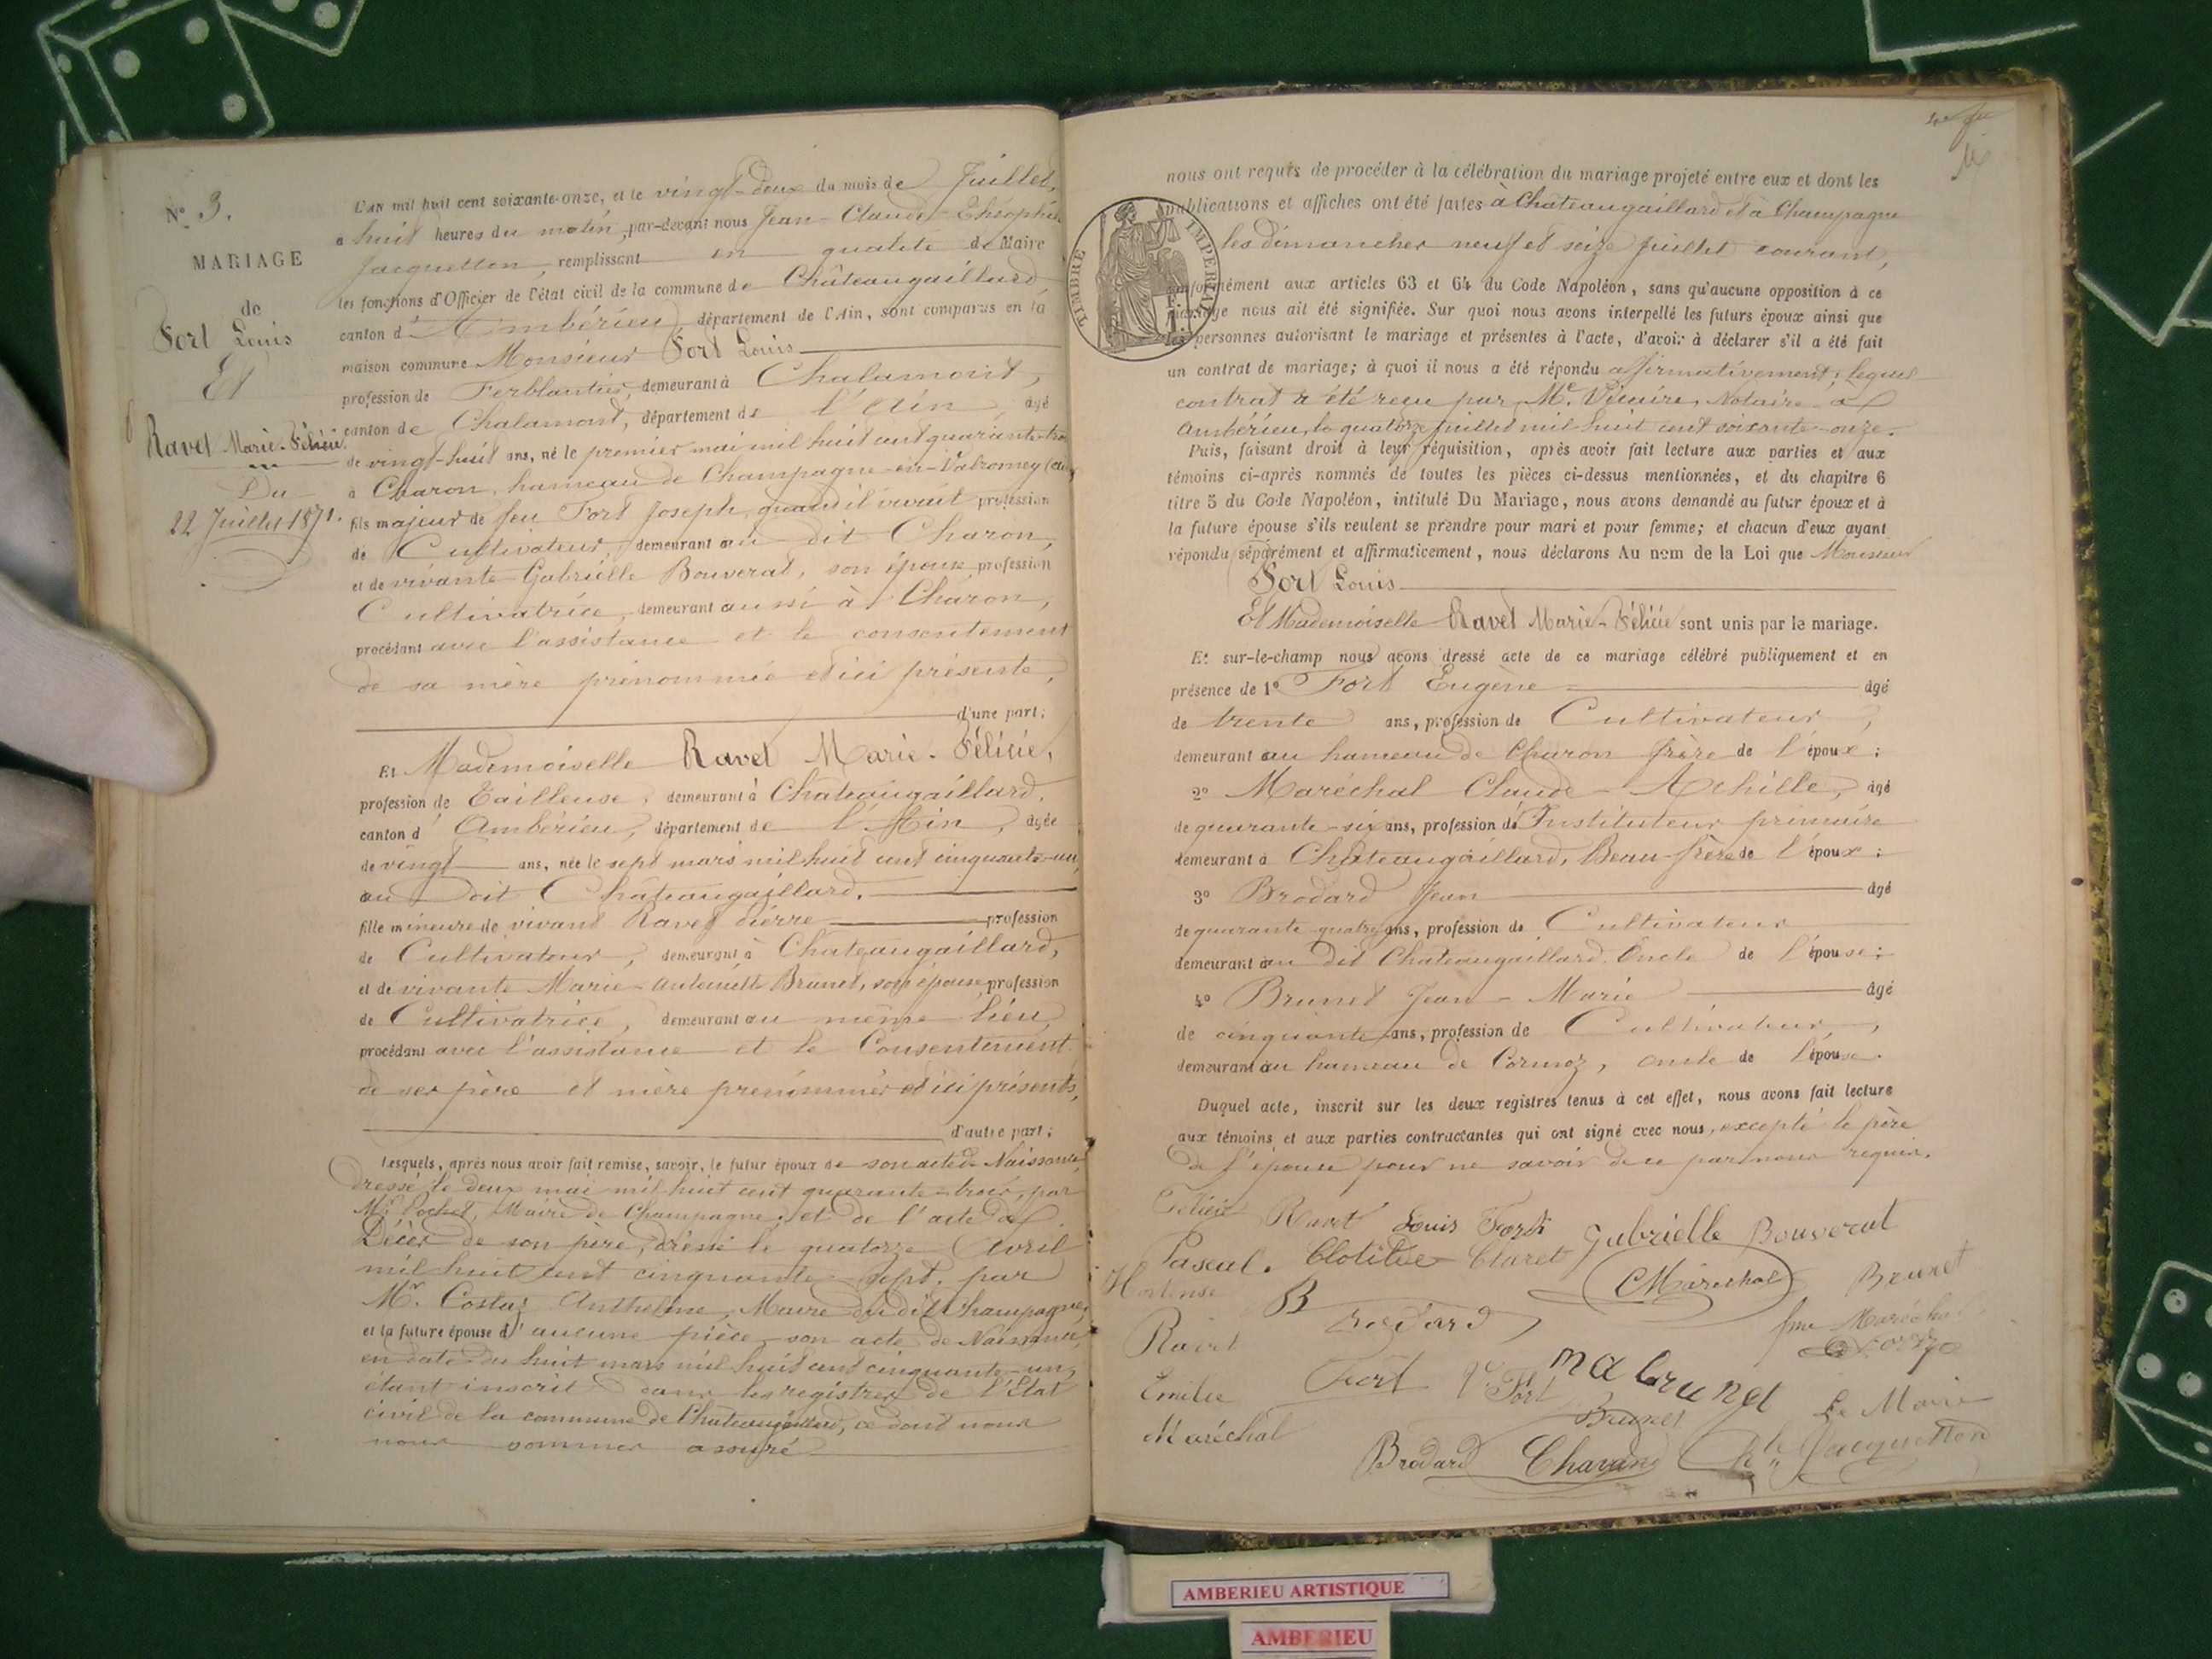 N° 3.
MARIAGE
de
Fort Louis
Et
Ravet Marie-Félicie
Du
22 Juillet 1871.
L'AN mil huit cent soixante-onze, et le vingt-deux du mois de Juillet,
à huit heures du matin, par-devant nous Jean-Claude-Théophile
Jacquetton, remplissant en qualité de Maire
les fonctions d'Officier de l'état civil de la commune de Châteaugaillard,
canton d'Ambérieu, département de l'Ain, sont comparus en la
maison commune Monsieur Fort Louis
profession de Ferblantier, demeurant à Chalamont,
canton de Chalamont, département de l'Ain, âgé
de vingt-huit ans, né le premier mai mil huit cent quarante-trois
à Charon, hameau de Champagne-en-Valromey (Ain)
fils majeur de feu Fort Joseph, quand il vivait profession
de Cultivateur, demeurant au dit Charon,
et de vivante Gabrielle Bouverat, son épouse profession
Cultivatrice, demeurant aussi à Charon,
procédant avec l'assistance et le consentement
de sa mère prénommée et ici présente,
d'une part;
Et Mademoiselle Ravet Marie-Félicie,
profession de Tailleuse, demeurant à Châteaugaillard,
canton d'Ambérieu, département de l'Ain, âgée
de vingt ans, née le sept mars mil huit cent cinquante-un,
au Doit Châteaugaillard.
fille mineure de vivant Ravet Pierre profession
de Cultivateur, demeurant à Châteaugaillard,
et de vivante Marie-Antoinette Brunet, son épouse profession
de Cultivatrice, demeurant au même lieu,
procédant avec l'assistance et le Consentement
de ses père et mère prénommés et ici présents,
d'autre part;
Lesquels, après nous avoir fait remise, savoir, le futur époux de son acte de Naissance,
dressé le deux mai mil huit cent quarante-trois, par
Mr. Pochet, Maire de Champagne; et de l'acte de
Décès de son père, dressé le quatorze Avril
mil huit cent cinquante-sept, par
Mr. Costaz Anthelme, Maire du dit Champagne,
et la future épouse d'aucune pièce, son acte de Naissance,
en date du huit mars mil huit cent cinquante-un,
étant inscrit dans les registres de l'État
civil de la commune de Châteaugaillard, ce dont nous
nous sommes assuré
nous ont requis de procéder à la célébration du mariage projeté entre eux et dont les
publications et affiches ont été faites à Châteaugaillard et à Champagne
les dimanches neuf et seize juillet courant,
TIMBRE IMPERIAL
conformément aux articles 63 et 64 du Code Napoléon, sans qu'aucune opposition à ce
mariage nous ait été signifiée. Sur quoi nous avons interpellé les futurs époux ainsi que
les personnes autorisant le mariage et présentes à l'acte, d'avoir à déclarer s'il a été fait
un contrat de mariage; à quoi il nous a été répondu affirmativement; lequel
contrat a été reçu par Me. Vicaire, Notaire à
Ambérieu, le quatorze juillet mil huit cent soixante-onze.
Puis, faisant droit à leur réquisition, après avoir fait lecture aux parties et aux
témoins ci-après nommés de toutes les pièces ci-dessus mentionnées, et du chapitre 6
titre 5 du Code Napoléon, intitulé Du Mariage, nous avons demandé au futur époux et à
la future épouse s'ils veulent se prendre pour mari et pour femme; et chacun d'eux ayant
répondu séparément et affirmativement, nous déclarons Au nom de la Loi que Monsieur
Fort Louis
Et Mademoiselle Ravet Marie-Félicie sont unis par le mariage.
Et sur-le-champ nous avons dressé acte de ce mariage célébré publiquement et en
présence de 1° Fort Eugène âgé
de trente ans, profession de Cultivateur,
demeurant au hameau de Charon frère de l'époux;
2° Maréchal Claude-Achille, âgé
de quarante-six ans, profession d'Instituteur primaire
demeurant à Châteaugaillard, Beau-frère de l'époux;
3° Brodard Jean âgé
de quarante quatre ans, profession de Cultivateur
demeurant au dit Châteaugaillard, Oncle de l'épouse;
4° Brunet Jean-Marie âgé
de cinquante ans, profession de Cultivateur,
demeurant au hameau de Cormoz, oncle de l'épouse.
Duquel acte, inscrit sur les deux registres tenus à cet effet, nous avons fait lecture
aux témoins et aux parties contractantes qui ont signé avec nous, excepté le père
de l'épouse pour ne savoir de ce par nous requis.
Félicie Ravet Louis Fort Gabrielle Bouverat
Pascal. Clotilde Claret CMaréchal Brunet
Hortense Brodard fme Maréchal
Ravet
Emilie Fort Fort ma brunet Le Maire
Maréchal Brunet
Brodard Chavant Jacquetton
AMBERIEU ARTISTIQUE
AMBERIEU